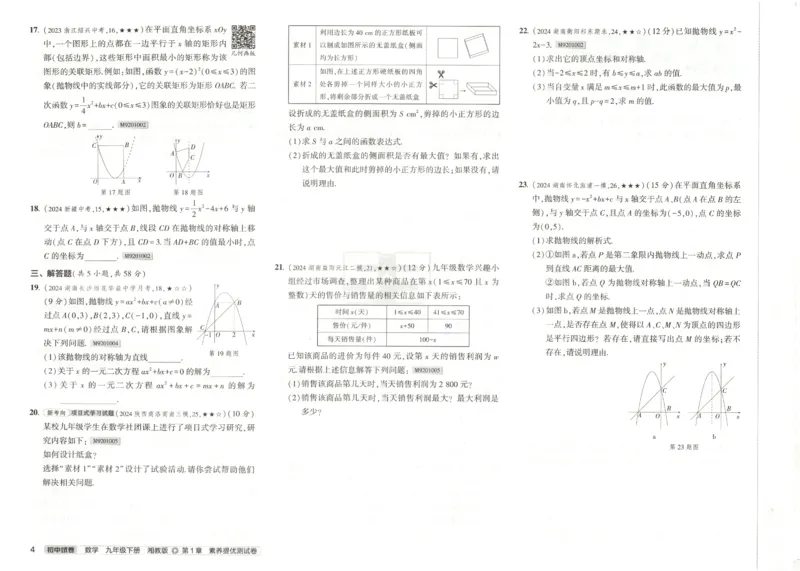 17. (2023 浙江绍兴中考,16,★★★)在平面直角坐标系 xOy
中,一个图形上的点都在一边平行于 x 轴的矩形内
部(包括边界),这些矩形中面积最小的矩形称为该
图形的关联矩形.例如:如图,函数 y=(x-2)²(0≤x≤3)的图
象(抛物线中的实线部分),它的关联矩形为矩形 OABC. 若二
次函数 y=1/4x²+bx+c(0≤x≤3)图象的关联矩形恰好也是矩形
OABC,则 b=______. M9201002
几何画板
y
C
B
O
A
x
第 17 题图
y
A
D
C
O
B
x
第 18 题图
18. (2024 新疆中考,15,★★★)如图,抛物线 y=1/2x²-4x+6 与 y 轴
交于点 A,与 x 轴交于点 B,线段 CD 在抛物线的对称轴上移
动(点 C 在点 D 下方),且 CD=3.当 AD+BC 的值最小时,点
C 的坐标为______. M9201002
三、解答题(共 5 小题,共 58 分)
19. (2024 湖南长沙雨花华益中学月考,18,★☆☆)
(9 分)如图,抛物线 y=ax²+bx+c(a≠0)经
过点 A(0,3),B(2,3),C(-1,0),直线 y=
mx+n(m≠0)经过点 B,C,请根据图象解
决下列问题. M9201004
(1)该抛物线的对称轴为直线______.
(2)关于 x 的一元二次方程 ax²+bx+c=0 的解为______.
(3)关于 x 的一元二次方程 ax²+bx+c=mx+n 的解为
______.
y
A
B
C
-1
O
2
x
第 19 题图
20. 新考向 项目式学习试题 (2024 陕西商洛商南三模,25,★★☆)(10 分)
某校九年级学生在数学社团课上进行了项目式学习研究,研
究内容如下: M9201005
如何设计纸盒?
选择“素材 1”“素材 2”设计了试验活动.请你尝试帮助他们
解决相关问题.
4 初中试卷 数学 九年级下册 湘教版 第 1 章 素养提优测试卷
素材 1
利用边长为 40 cm 的正方形纸板可
以制成如图所示的无盖纸盒(侧面
均为长方形)
素材 2
如图,在上述正方形硬纸板的四角
处各剪掉一个同样大小的小正方
形,将剩余部分折成一个无盖纸盒
设折成的无盖纸盒的侧面积为 S cm²,剪掉的小正方形的边
长为 a cm.
(1)求 S 与 a 之间的函数表达式.
(2)折成的无盖纸盒的侧面积是否有最大值?如果有,求出
这个最大值和此时剪掉的小正方形的边长;如果没有,请
说明理由.
21. (2024 湖南益阳沅江二模,21,★★☆)(12 分)九年级数学兴趣小
组经过市场调查,整理出某种商品在第 x(1≤x≤70 且 x 为
整数)天的售价与销售量的相关信息如下表所示:
时间 x(天) 1≤x≤40 41≤x≤70
售价(元/件) x+50 90
每天销售量(件) 100-x
已知该商品的进价为每件 40 元,设第 x 天的销售利润为 w
元.请根据上述信息解答下列问题: M9201005
(1)销售该商品第几天时,当天销售利润为 2 800 元?
(2)销售该商品第几天时,当天销售利润最大?最大利润是
多少?
22. (2024 湖南衡阳祁东期末,24,★★☆)(12 分)已知抛物线 y=x²-
2x-3. M9201002
(1)求出它的顶点坐标和对称轴.
(2)当-2≤x≤2 时,有 b≤y≤a,求 ab 的值.
(3)当自变量 x 满足 m≤x≤m+1 时,此函数的最大值为 p,最
小值为 q,且 p-q=2,求 m 的值.
23. (2024 湖南怀化溆浦一模,26,★★★)(15 分)在平面直角坐标系
中,抛物线 y=-x²+bx+c 与 x 轴交于点 A,B(点 A 在点 B 的左
侧),与 y 轴交于点 C,且点 A 的坐标为(-5,0),点 C 的坐标
为(0,5).
(1)求抛物线的解析式.
(2)①如图 a,若点 P 是第二象限内抛物线上一动点,求点 P
到直线 AC 距离的最大值.
②如图 b,若点 Q 为抛物线对称轴上一动点,当 QB=QC
时,求点 Q 的坐标.
(3)如图 b,若点 M 是抛物线上一点,点 N 是抛物线对称轴上
一点,是否存在点 M,使得以 A,C,M,N 为顶点的四边形
是平行四边形?若存在,请直接写出点 M 的坐标;若不
存在,请说明理由.
y
C
A
O
B
x
a
y
C
A
O
B
x
b
第 23 题图